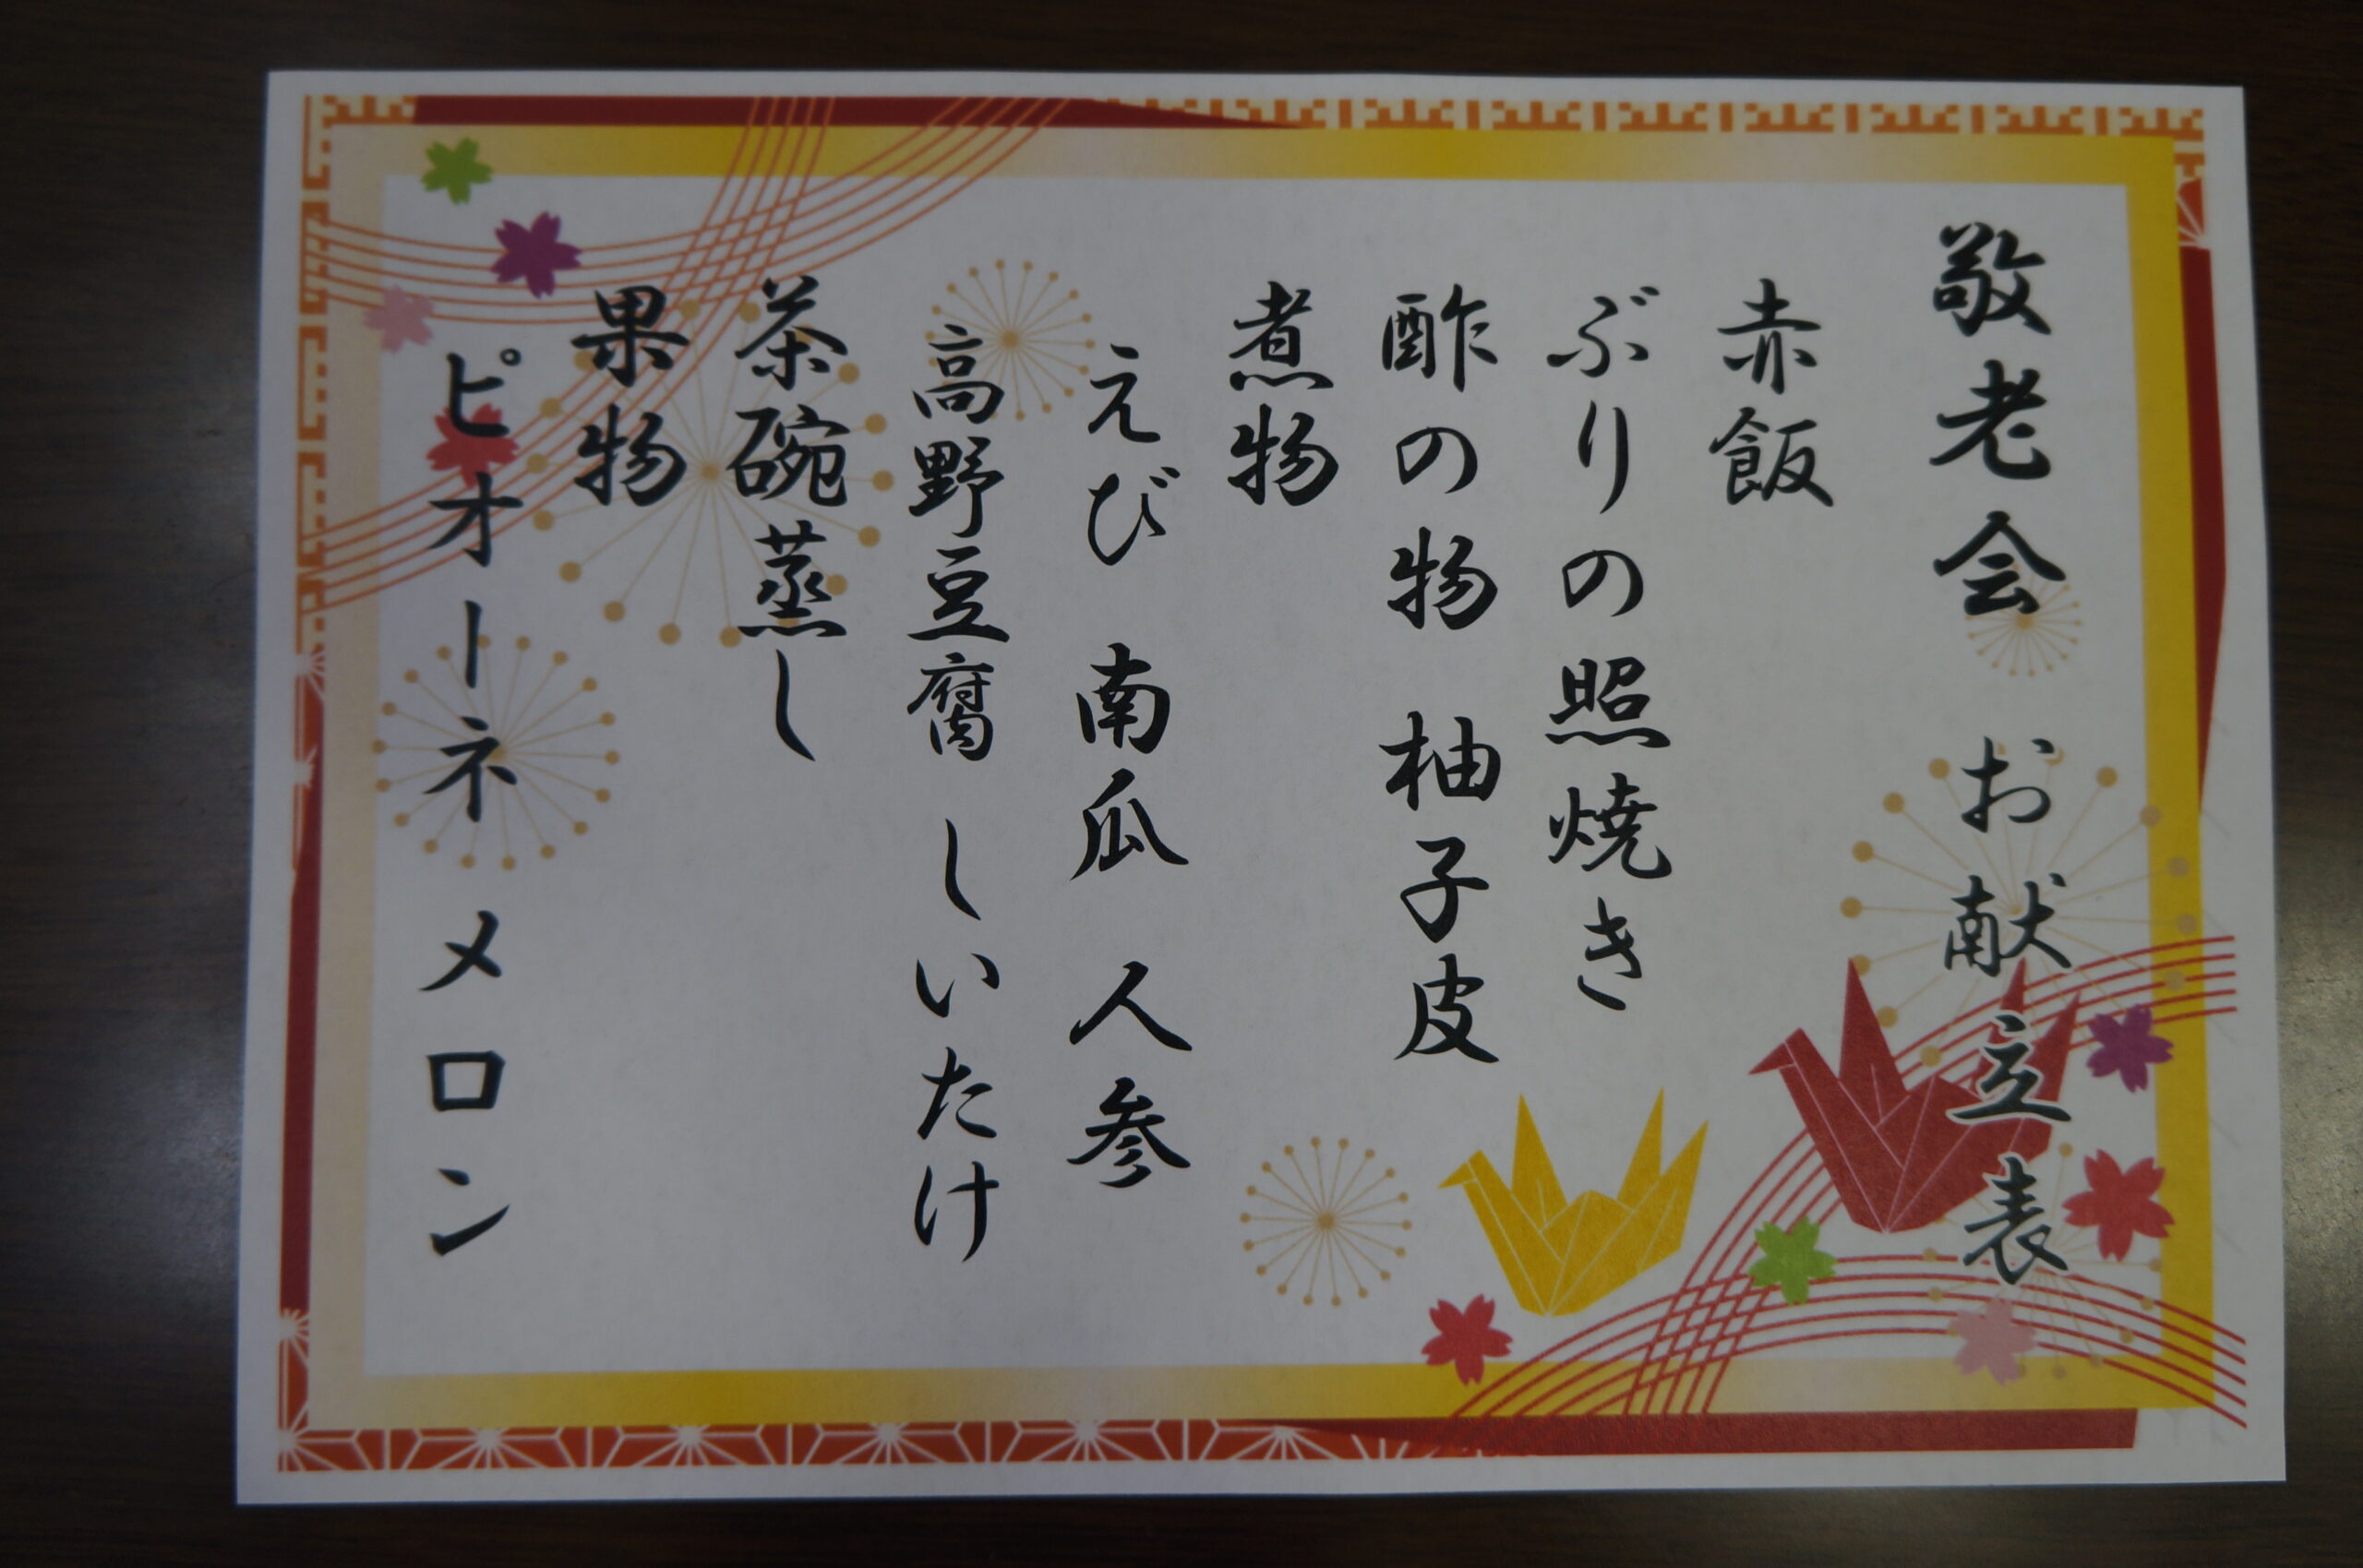 敬老会 お献立表
赤飯
ぶりの照焼き
酢の物 柚子皮
煮物
えび 南瓜 人参
高野豆腐 しいたけ
茶碗蒸し
果物
ピオーネ メロン